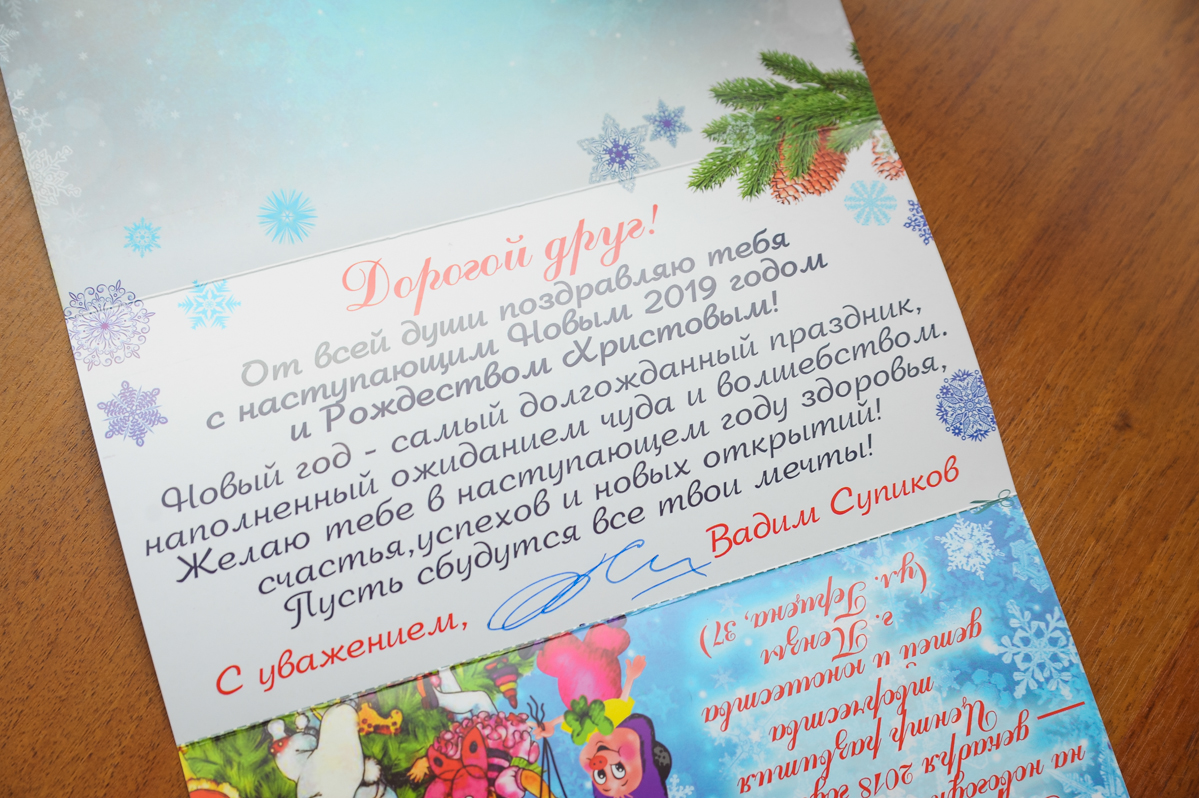 Дорогой друг!
От всей души поздравляю тебя
с наступающим Новым 2019 годом
и Рождеством Христовым!
Новый год - самый долгожданный праздник,
наполненный ожиданием чуда и волшебством.
Желаю тебе в наступающем году здоровья,
счастья,успехов и новых открытий!
Пусть сбудутся все твои мечты!
С уважением,
Вадим Супиков
на
декабря 2018
—
Центр развития
творчества
детей и юношества
г. Пензы
(ул. Герцена, 37)